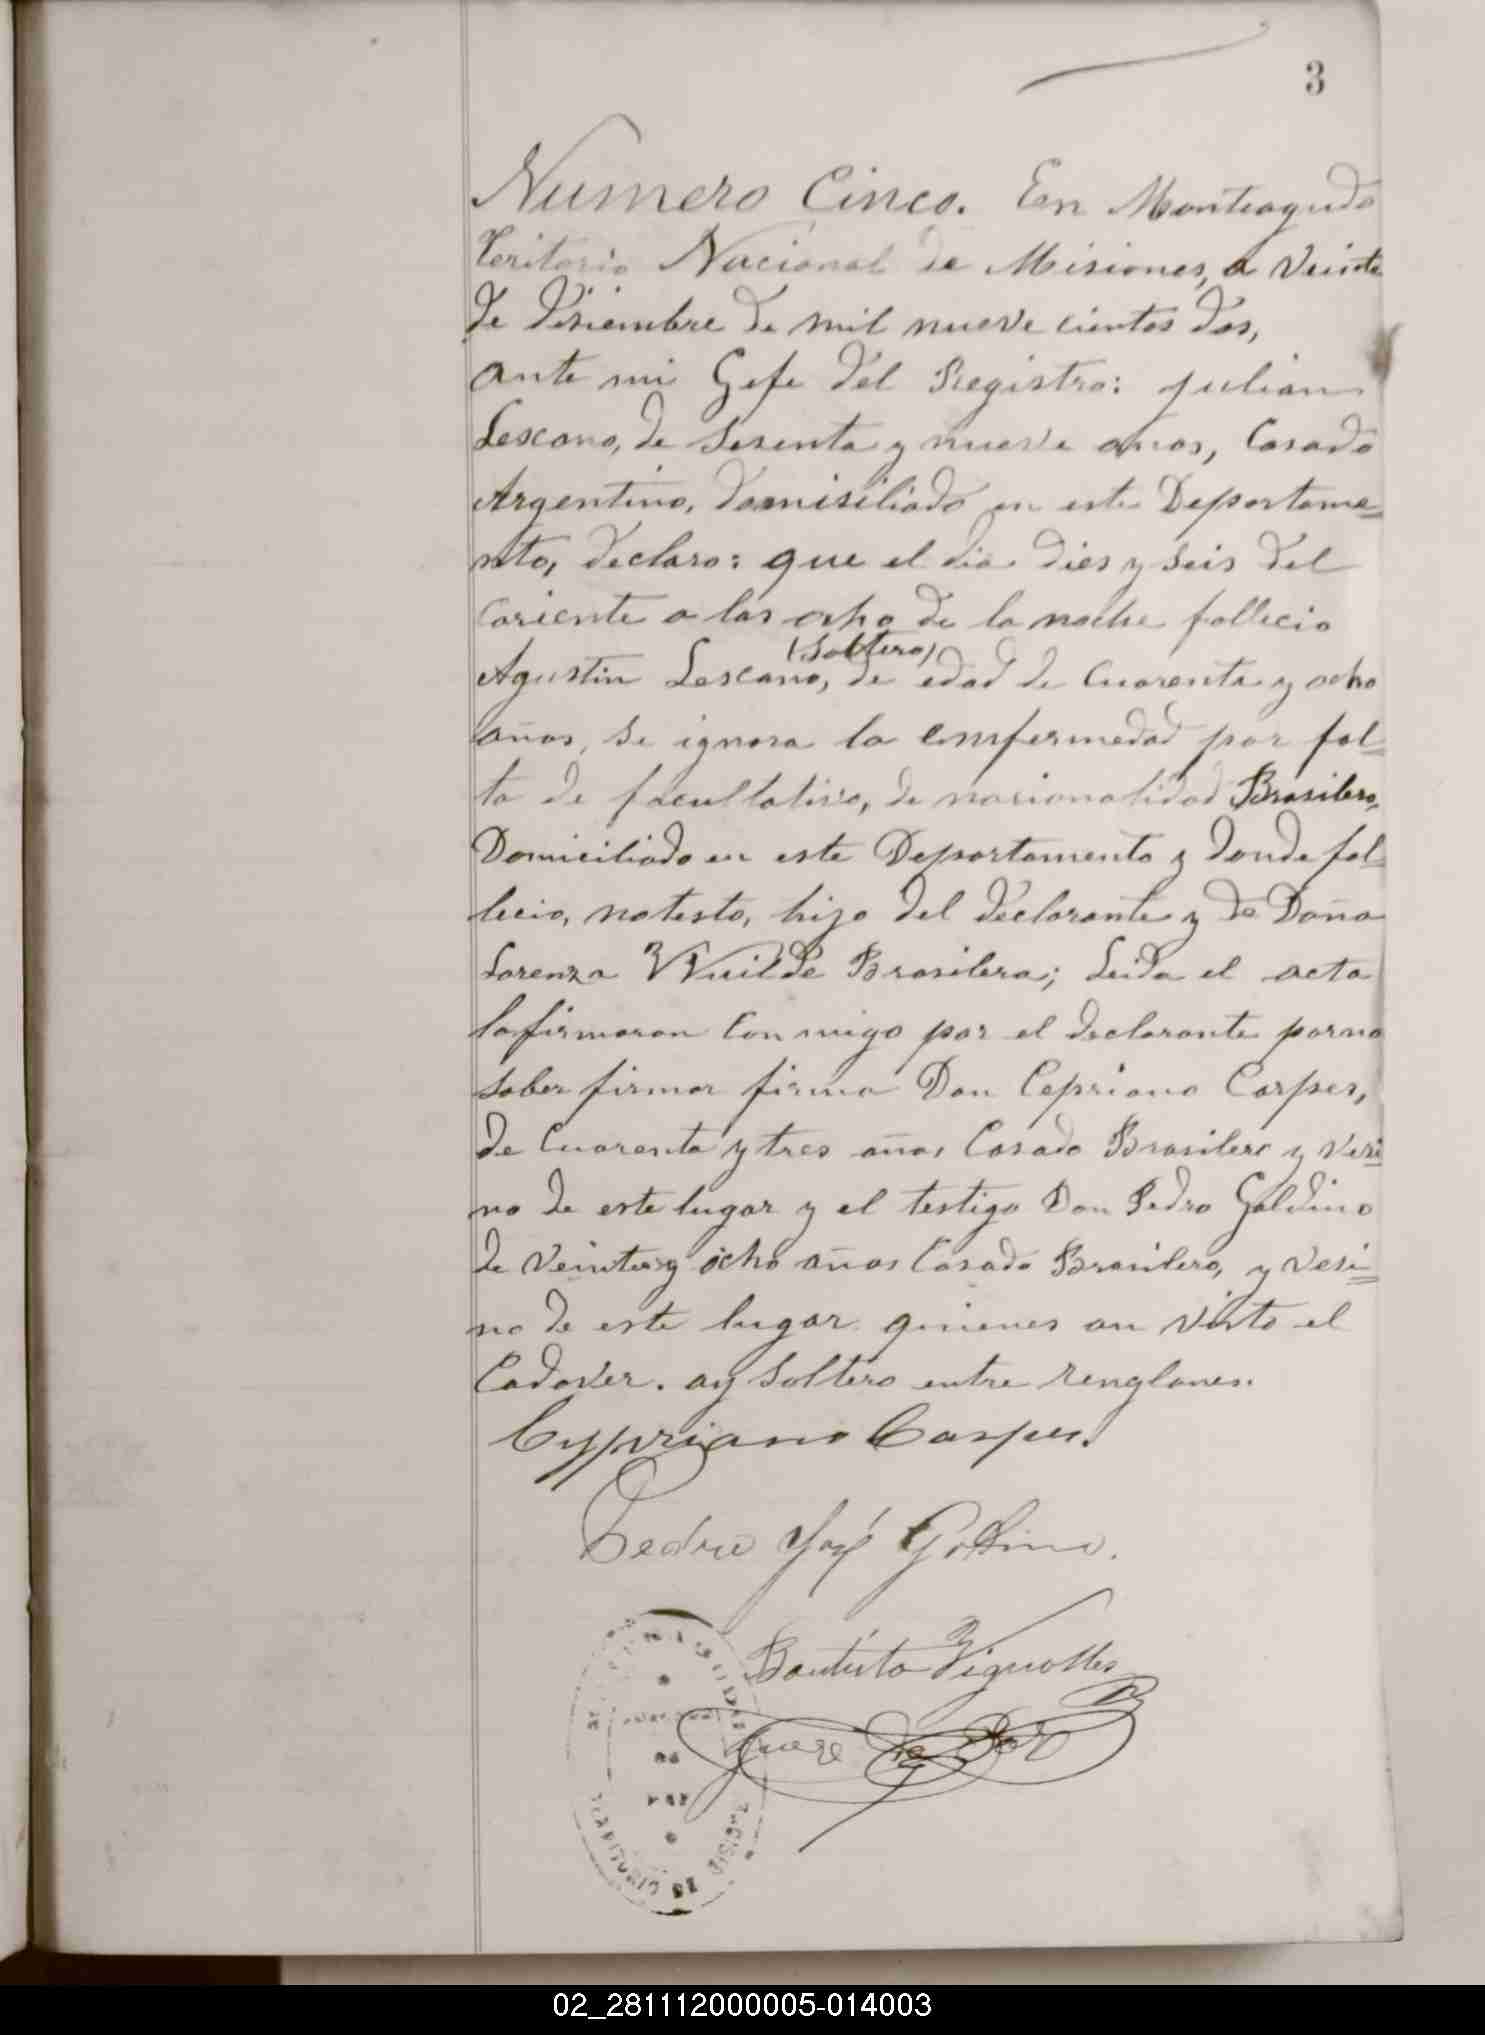 3
Numero Cinco. En Monteagudo
Teritorio Nacional de Misiones, a Veinte
de Disiembre de mil nueve cientos dos,
ante mi Gefe del Registro: Julian
Lescano, de Sesenta y nueve años, Casado
Argentino, domisiliado en este Departame=
nto, declaro: que el dia dies y seis del
coriente a las ocho de la noche fallecio
(Soltero)
Agustin Lescano, de edad de Cuarenta y ocho
años, se ignora la emfermedad por fal=
ta de facultativo, de nasionalidad Brasilero,
Domiciliado en este Departamento y donde fal=
lecio, notesto, hijo del declarante y de Doña
Lorenza Wuilde Brasilera; Leida el acta
lafirmaron Con migo por el declarante porno
saber firmar firma Don Cepriano Carpes,
de Cuarenta y tres años Casado Brasilero y Vesi=
no de este lugar y el testigo Don Pedro Galdino
de Veinte y ocho años Casado Brasilero, y Vesi=
no de este lugar quienes an visto el
Cadaver. ay Soltero entre renglones.
Cypriano Carpes.
Pedro José Galdino.
Bautista Vignolles
Juez de Paz
TERRITORIO DE
02_281112000005-014003